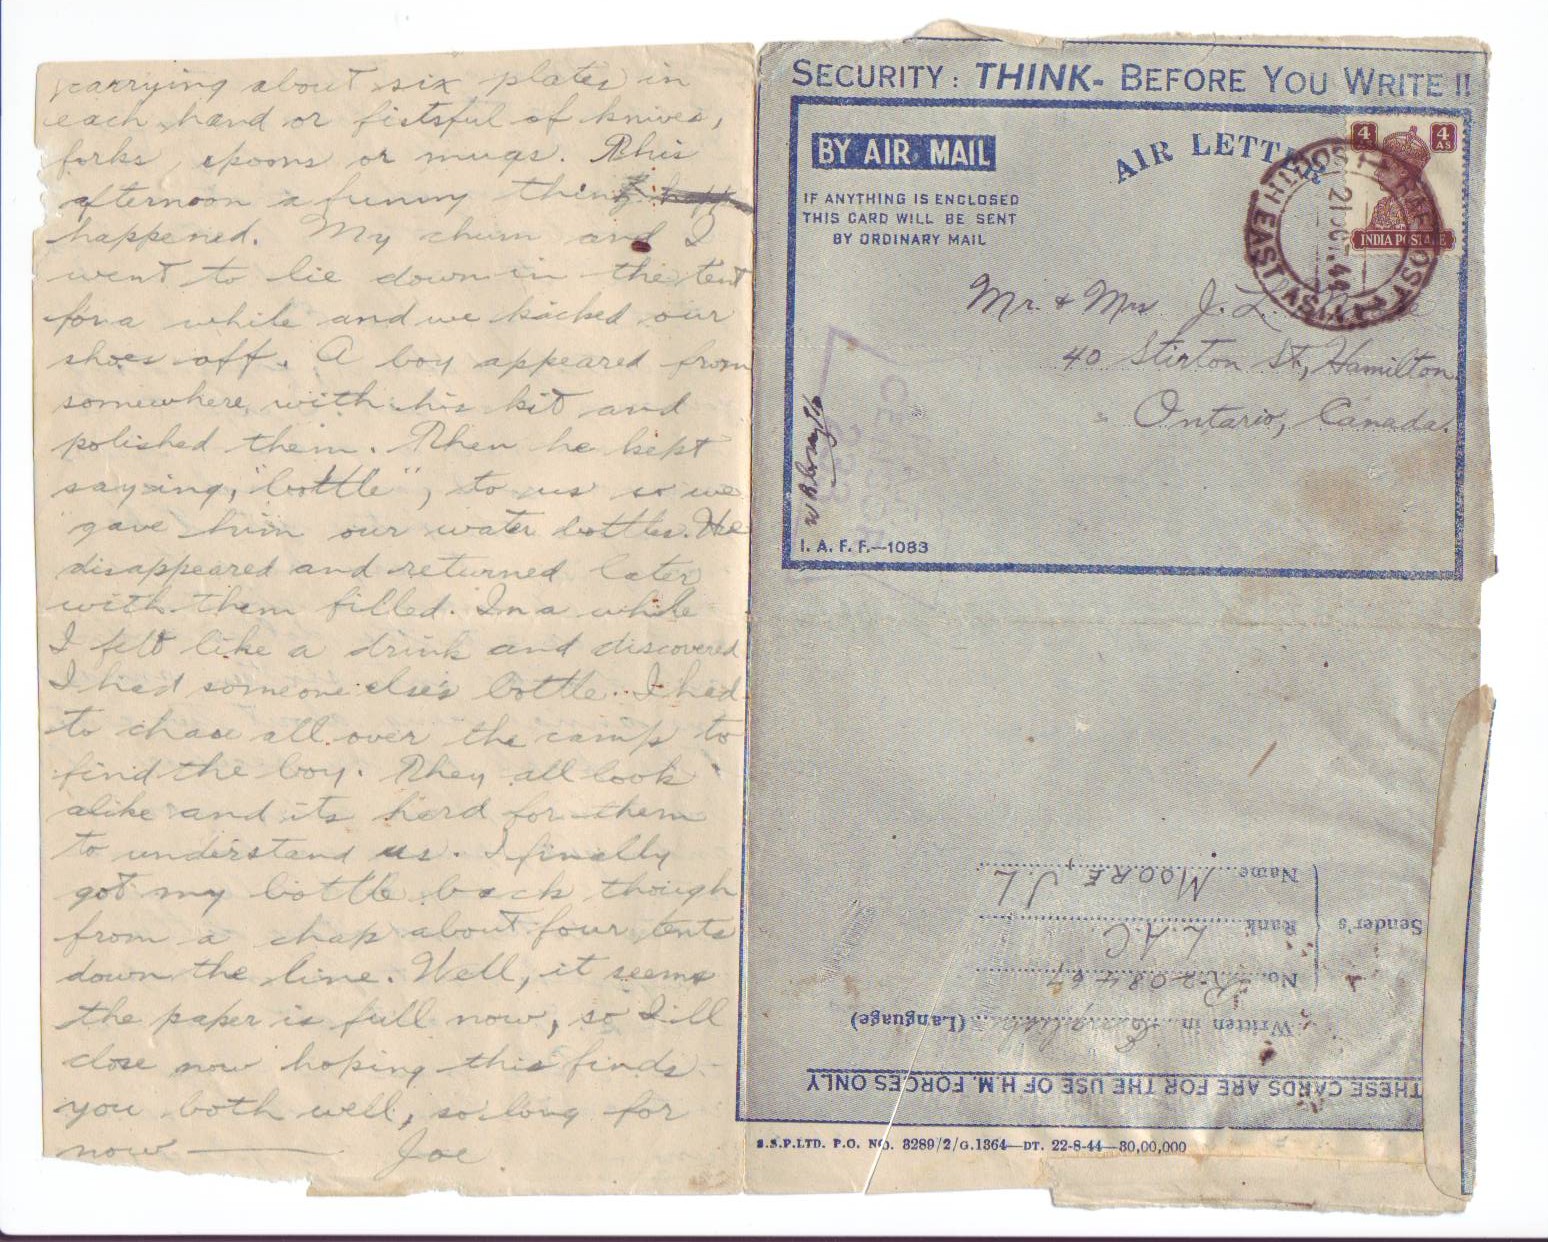 carrying about six plates in
each hand or fistsful of knives,
forks, spoons or mugs. This
afternoon a funny thing
happened. My chum and I
went to lie down in the tent
for a while and we kicked our
shoes off. A boy appeared from
somewhere with his kit and
polished them. Then he kept
saying, "bottle", to us so we
gave him our water bottles. He
disappeared and returned later
with them filled. In a while
I felt like a drink and discovered
I had someone else's bottle. I had
to chase all over the camp to
find the boy. They all look
alike and its hard for them
to understand us. I finally
got my bottle back though
from a chap about four tents
down the line. Well, it seems
the paper is full now, so I'll
close now hoping this finds
you both well, so long for
now — Joe
SECURITY: THINK- BEFORE YOU WRITE !!
BY AIR MAIL
AIR LETTER
IF ANYTHING IS ENCLOSED
THIS CARD WILL BE SENT
BY ORDINARY MAIL
4 AS
4 AS
INDIA POSTAGE
RAF POST
SOUTH EAST ASIA
21 OCT. 44
Mr. & Mrs J. L.
40 Stirton St, Hamilton
Ontario, Canada.
CENSOR
I. A. F. F.—1083
Sender's
Name MOORE, J.L
Rank L.A.C.
No. R.208467
Written in English (Language)
THESE CARDS ARE FOR THE USE OF H.M. FORCES ONLY
S.S.P.LTD. P.O. NO. 3289/2/G.1364—DT. 22-8-44—30,00,000